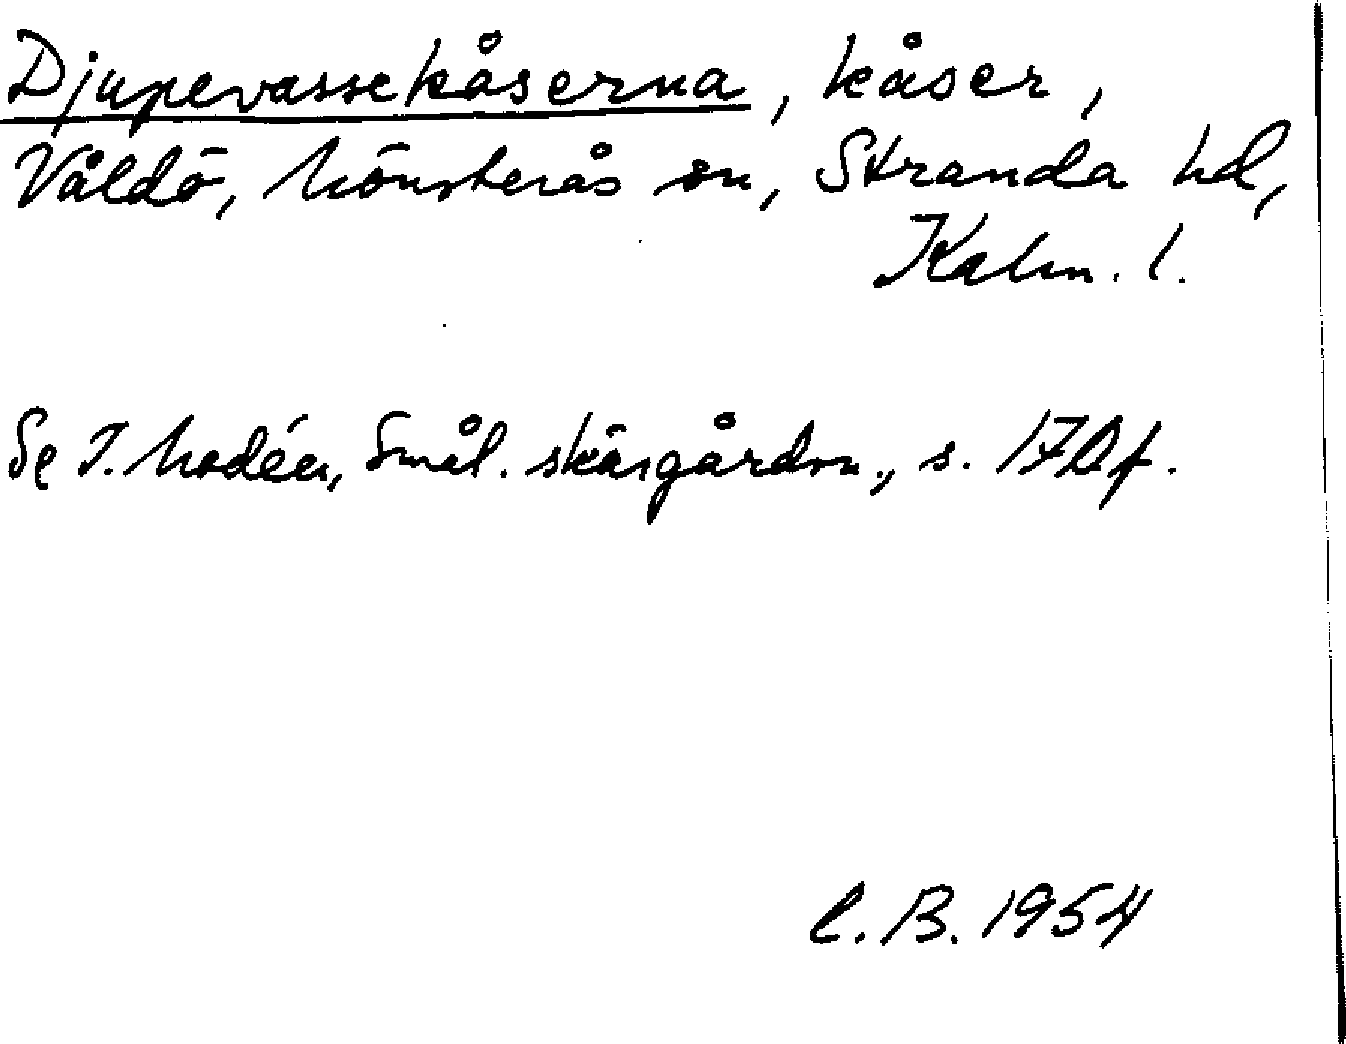 Djupevassekåserna, kåser,
Våldö, Mönsterås sn, Stranda hd,
Kalm. l.
Se I. Modéer, Smål. skärgårdsn., s. 170 f.
C. B. 1954